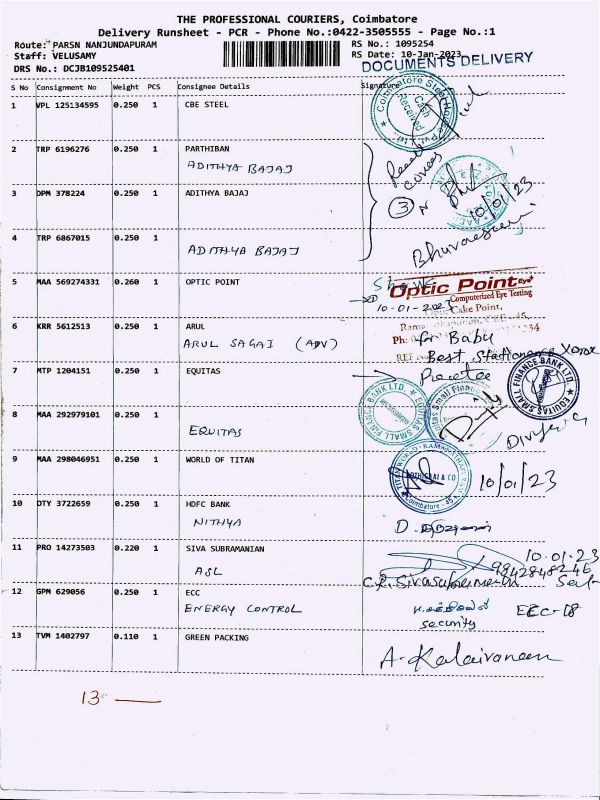 THE PROFESSIONAL COURIERS, Coimbatore
Delivery Runsheet - PCR - Phone No.:0422-3505555 - Page No.:1
Route: PARSN NANJUNDAPURAM
RS No.: 1095254
Staff: VELUSAMY
RS Date: 10-Jan-2023
DRS No.: DCJB109525401
DOCUMENTS DELIVERY
S No Consignment No Weight PCS Consignee Details Signature
1 VPL 125134595 0.250 1 CBE STEEL
Cash Received
2 TRP 6196276 0.250 1 PARTHIBAN
ADITHYA BAJAJ
3 DPM 378224 0.250 1 ADITHYA BAJAJ
3
10/01/23
4 TRP 6867015 0.250 1
ADITHYA BAJAJ
5 MAA 569274331 0.260 1 OPTIC POINT
Optic Point Eye+
Computerized Eye Testing
10-01-2023
Cake Point,
6 KRR 5612513 0.250 1 ARUL
ARUL SAGAI (ADV)
for Babu
Best Stationers Xerox
7 MTP 1204151 0.250 1 EQUITAS
EQUITAS SMALL FINANCE BANK LTD.
8 MAA 292979101 0.250 1
EQUITAS
9 MAA 298046951 0.250 1 WORLD OF TITAN
10/01/23
10 DTY 3722659 0.250 1 HDFC BANK
NITHYA
11 PRO 14273503 0.220 1 SIVA SUBRAMANIAN
ASL
10.01.23
9842848246
12 GPM 629056 0.250 1 ECC
ENERGY CONTROL
security
13 TVM 1402797 0.110 1 GREEN PACKING
A. Kalaivanan
13